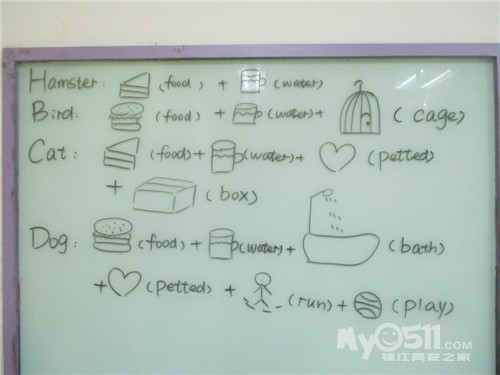 Hamster: (food) + (water)
Bird: (food) + (water) + (cage)
Cat: (food) + (water) + (petted)
+ (box)
Dog: (food) + (water) + (bath)
+ (petted) + (run) + (play)
My0511.com
镇江网友之家